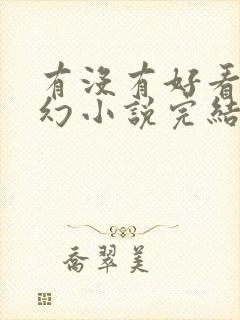 有沒有好看
幻小說完結
喬翠美